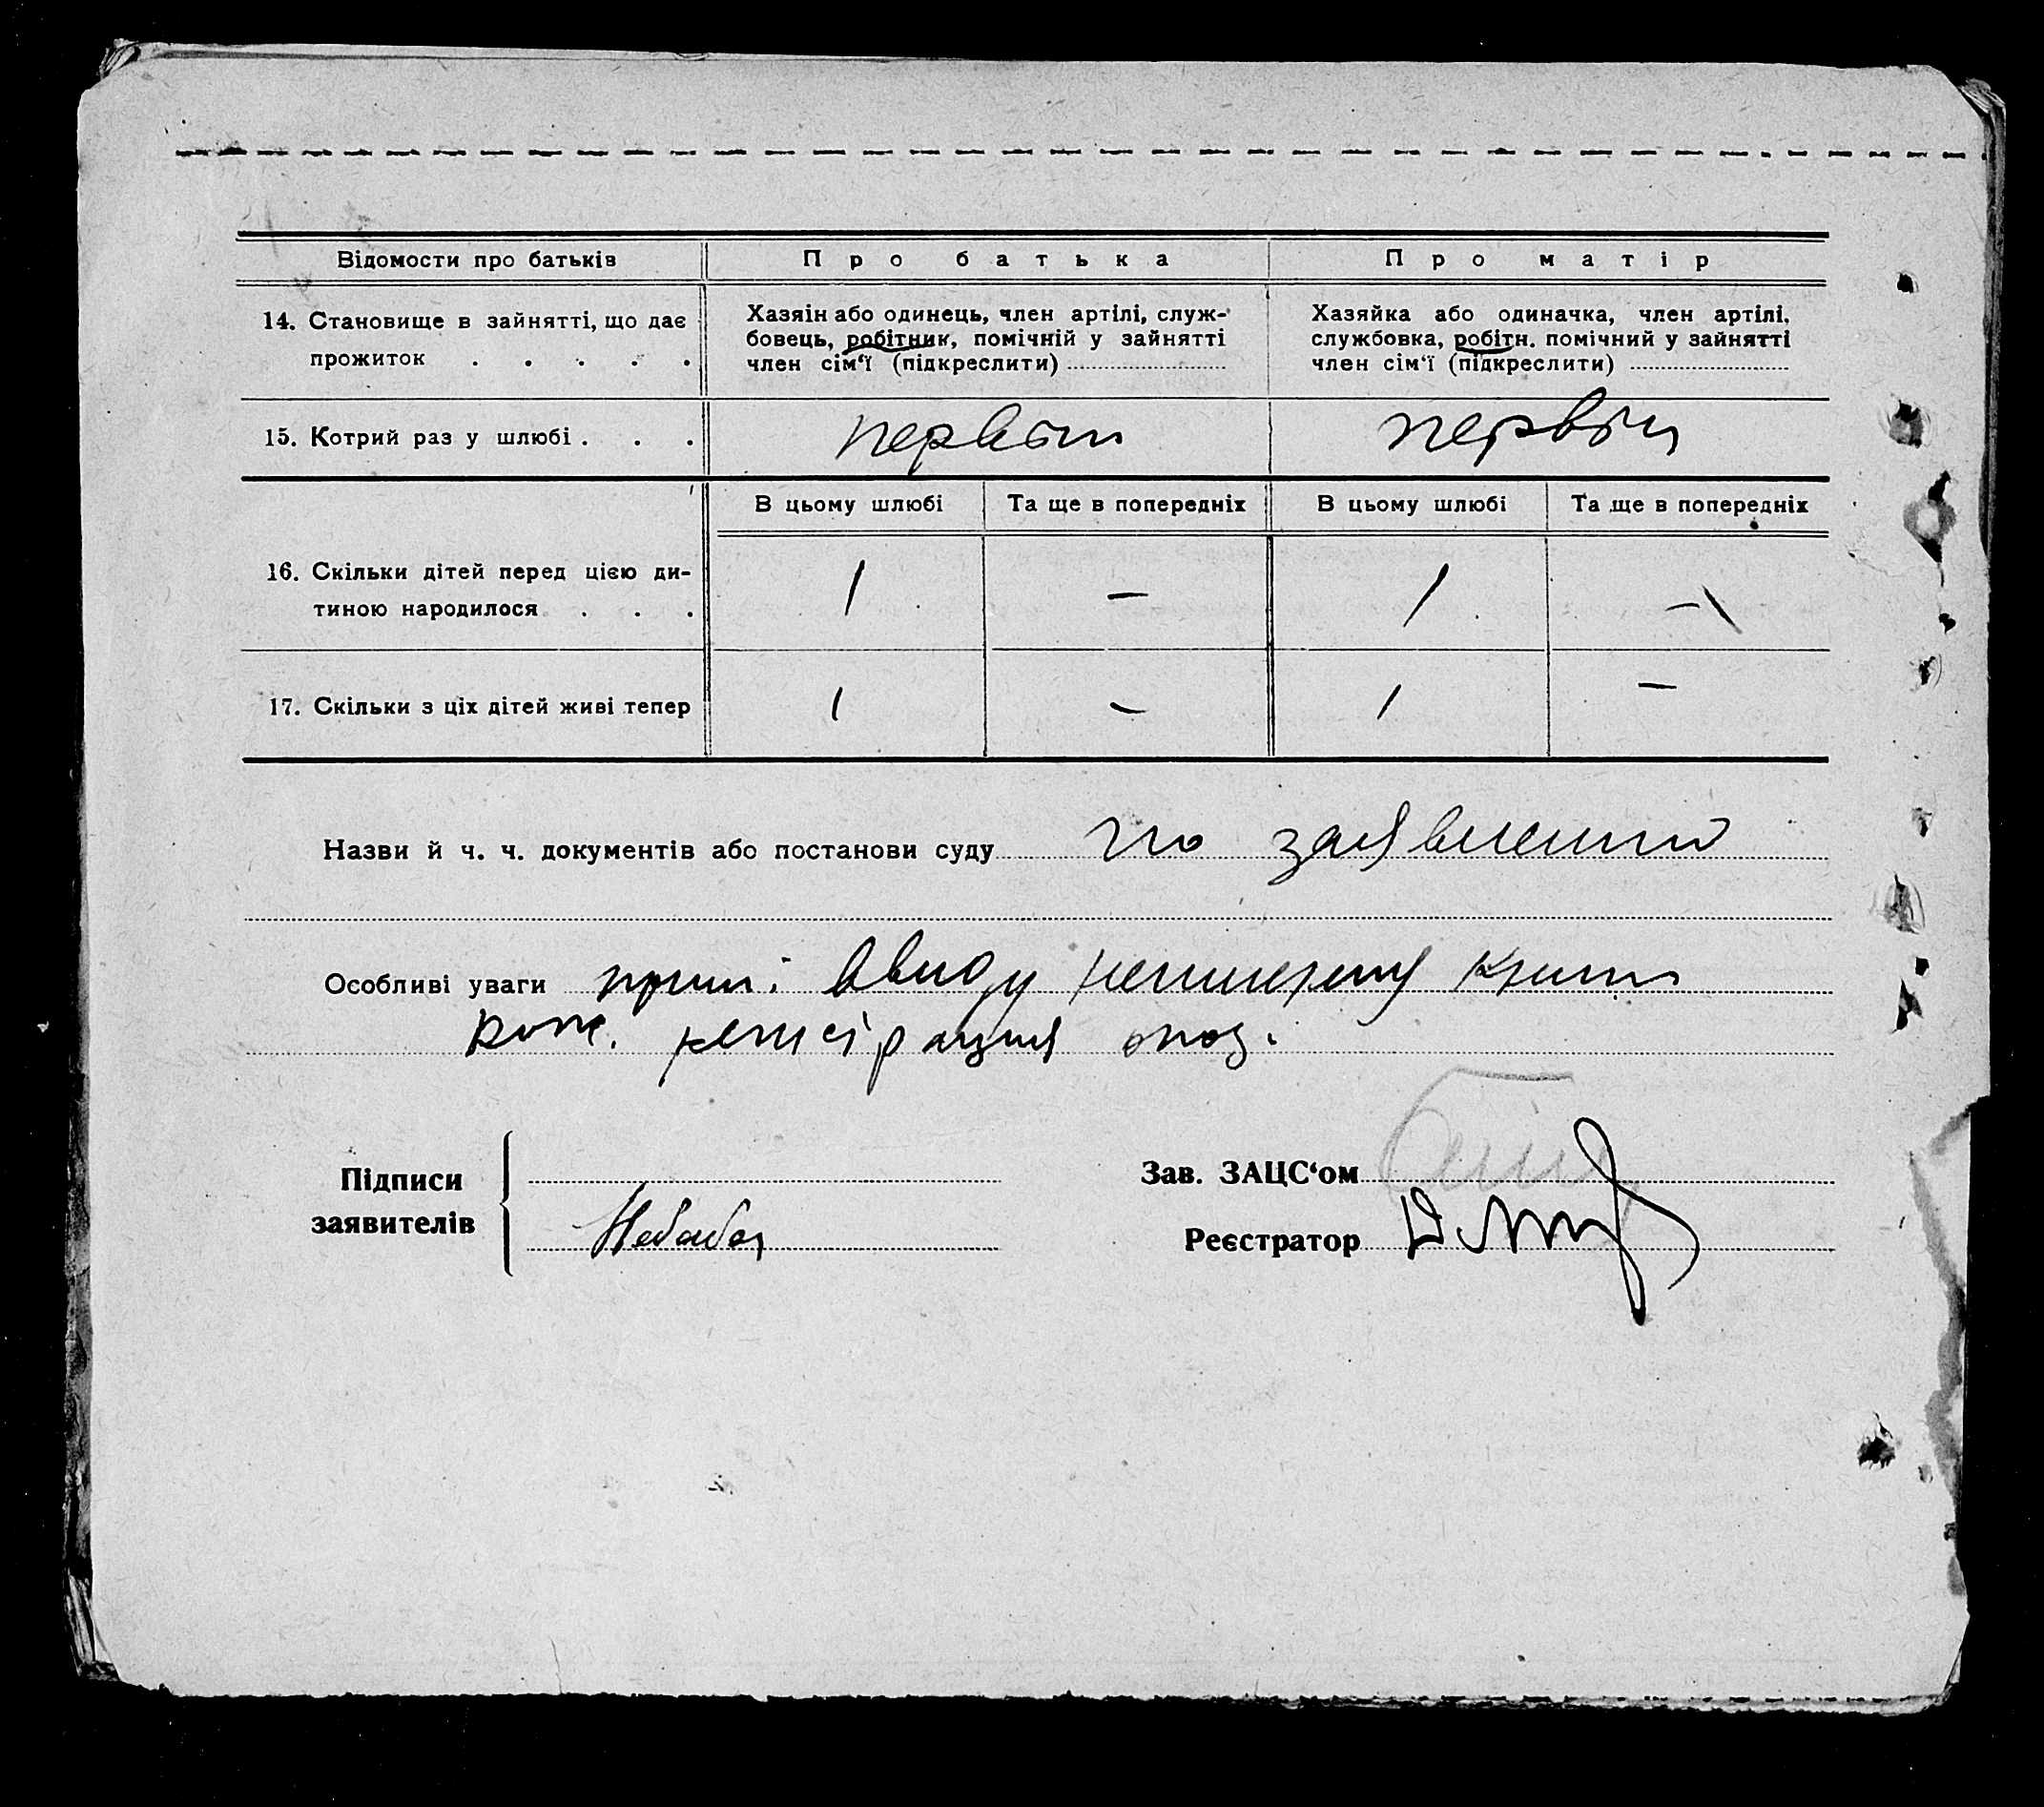 Відомости про батьків Про батька Про матір
14. Становище в зайнятті, що дає
прожиток . . . . .
Хазяін або одинець, член артілі, служ-
бовець, робітник, помічній у зайнятті
член сім‘ї (підкреслити)
Хазяйка або одиначка, член артілі,
службовка, робітн. помічний у зайнятті
член сім‘ї (підкреслити)
15. Котрий раз у шлюбі . . . первый первый
В цьому шлюбі Та ще в попередніх В цьому шлюбі Та ще в попередніх
16. Скільки дітей перед цією ди-
тиною народилося . . . 1 — 1 —
17. Скільки з ціх дітей живі тепер 1 — 1 —
Назви й ч. ч. документів або постанови суду по заявлению
Особливі уваги ввиду
регистрация
Підписи
заявителів
Зав. ЗАЦС‘ом
Реєстратор